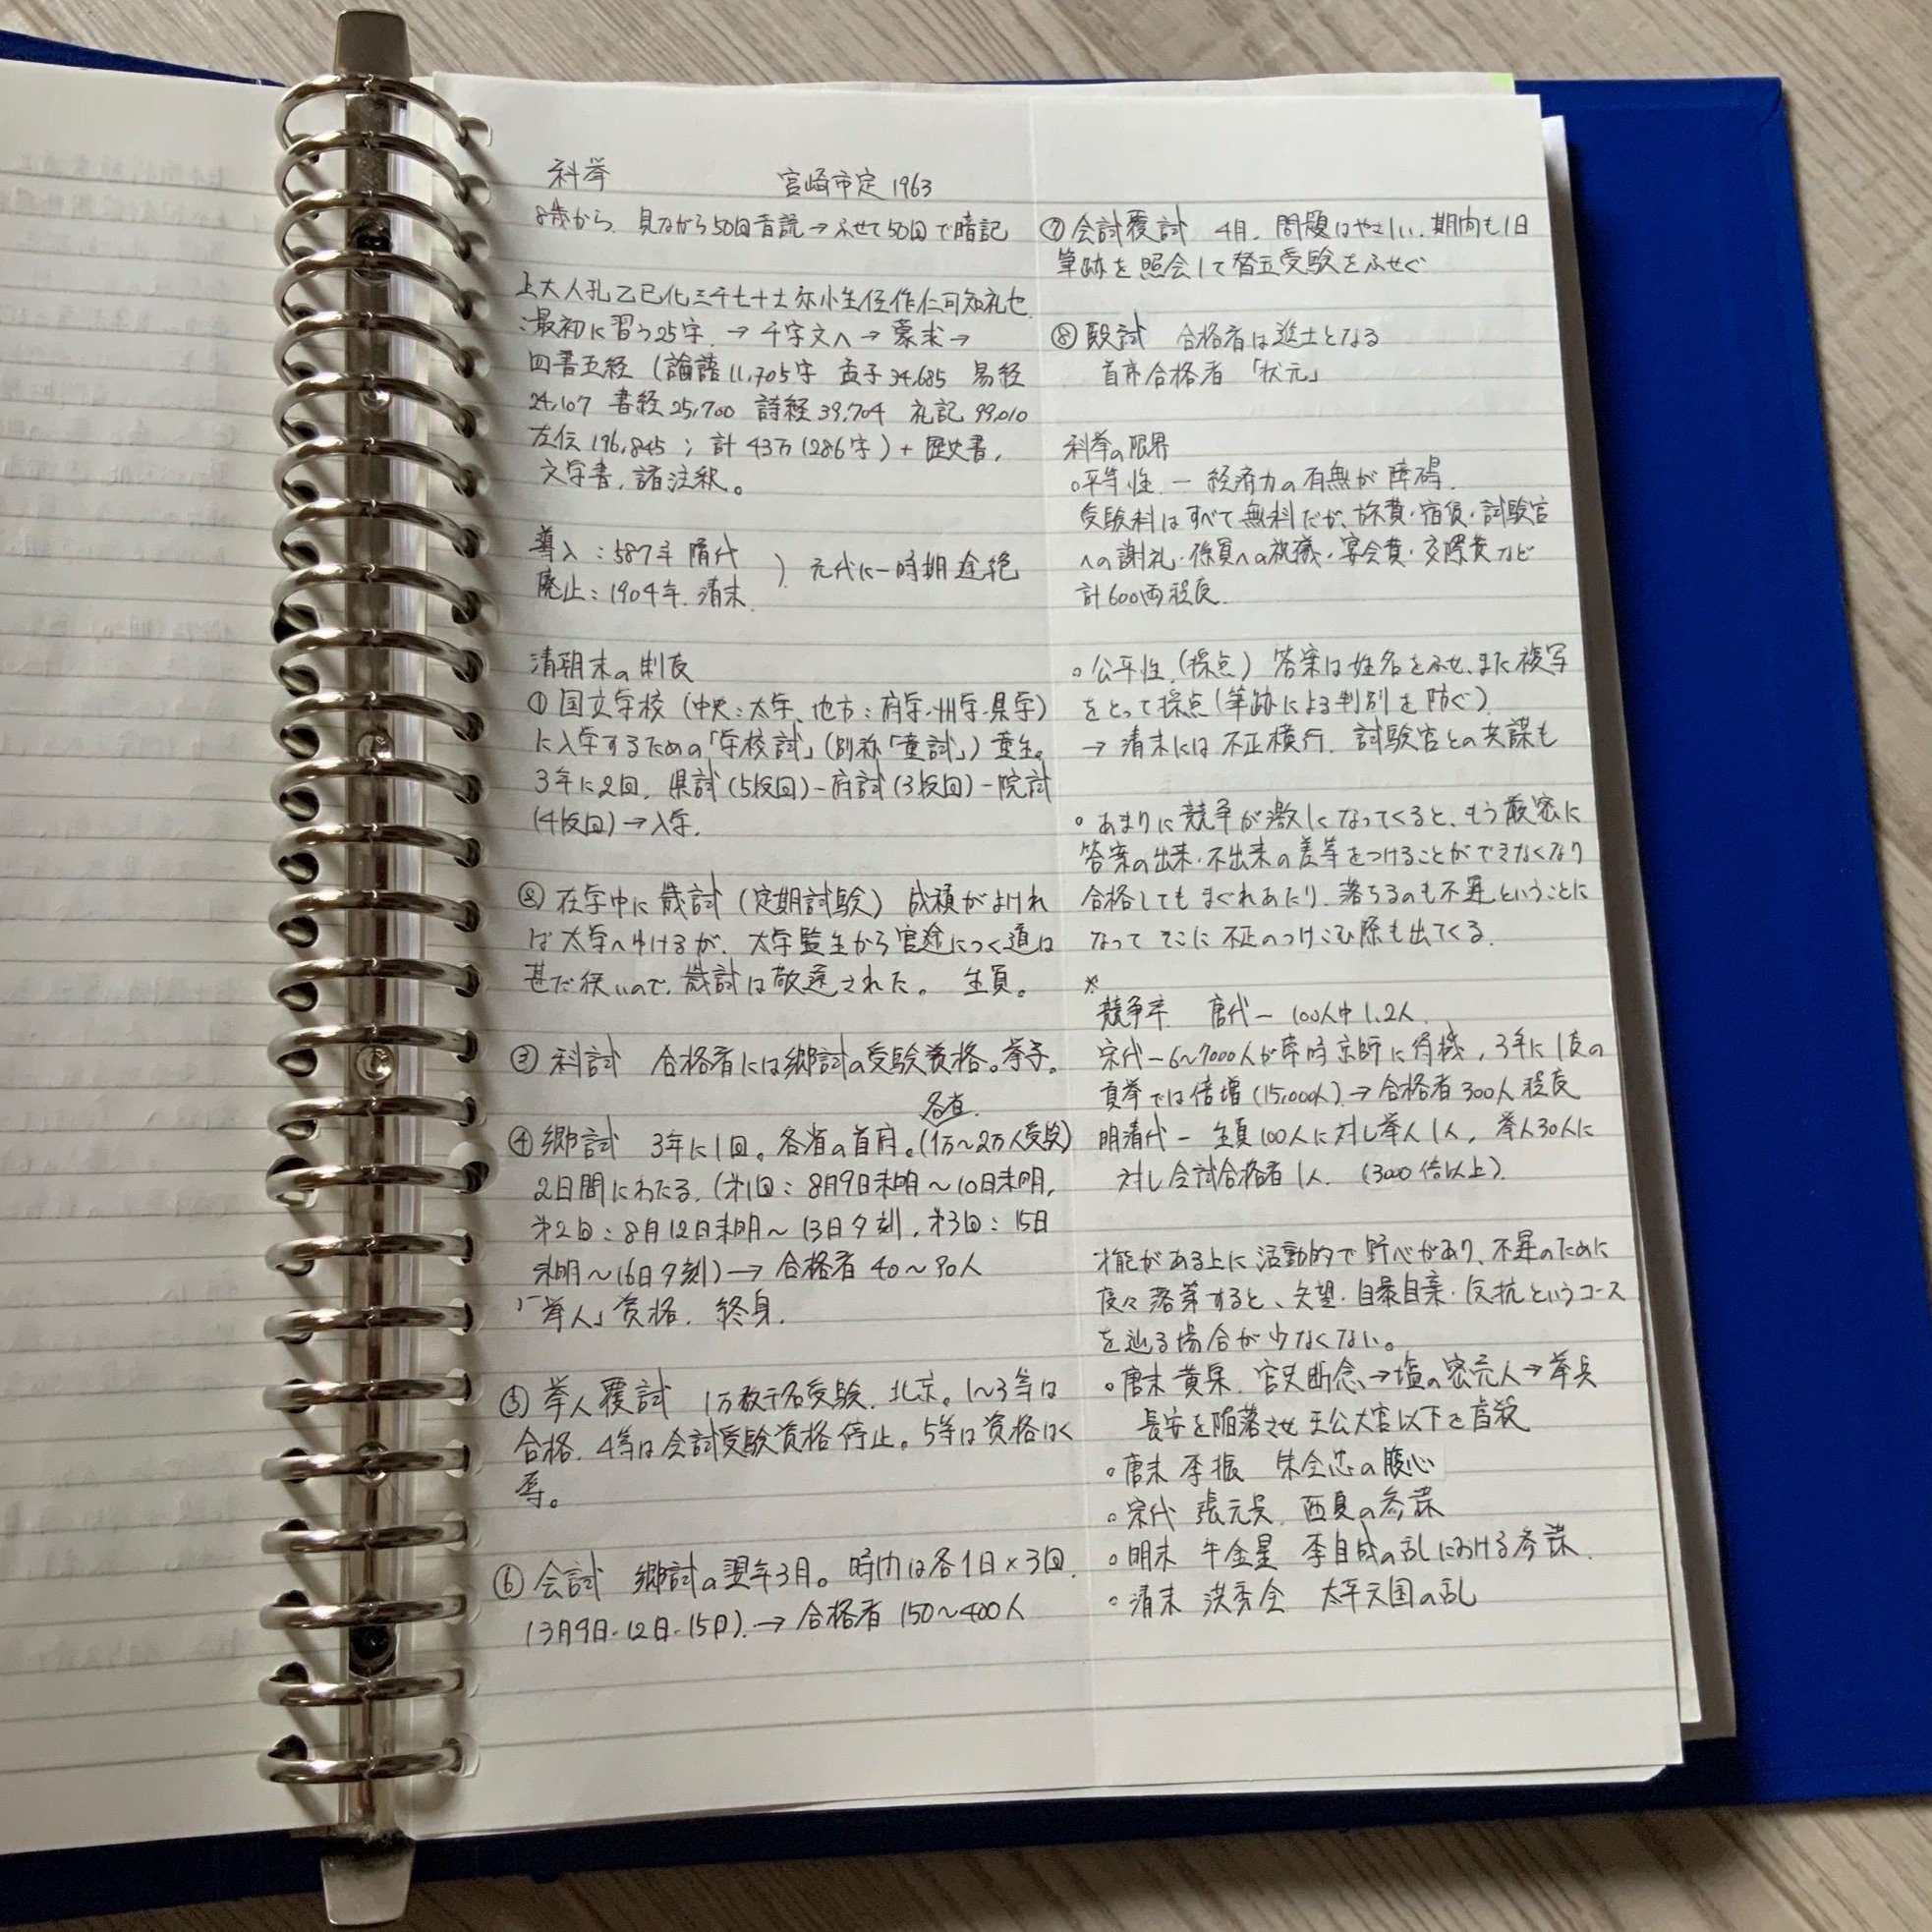 科挙 宮崎市定 1963
8歳から 見ながら50回音読→ふせて50回で暗記
上大人孔乙己化三千七十士尓小生佳作仁可知礼也
:最初に習う25字. → 千字文へ → 蒙求 →
四書五経 (論語11,705字 孟子34,685 易経
24,107 書経25,700 詩経39,704 礼記99,010
左伝196,845 ; 計43万1286字) + 歴史書,
文学書, 諸注釈。
導入:587年 隋代
廃止:1904年. 清末. ) 元代に一時期途絶
清朝末の制度
① 国立学校 (中央:太学、地方:府学・州学・県学)
に入学するための「学校試」(別称「童試」) 童生。
3年に2回, 県試(5段回)-府試(3段回)-院試
(4段回) → 入学.
② 在学中に歳試 (定期試験) 成積がよけれ
ば太学へゆけるが、太学監生から官途につく道は
甚だ狭いので、歳試は敬遠された。 生員。
③ 科試 合格者には郷試の受験資格。挙子。
各省.
④ 郷試 3年に1回。各省の首府。(1万~2万人受験)
2日間にわたる, (才1回: 8月9日未明~10日未明,
才2回: 8月12日未明~13日夕刻, 才3回: 15日
未明~16日夕刻) → 合格者 40~90人
「挙人」資格. 終身.
⑤ 挙人覆試 1万数千名受験. 北京。1~3等は
合格. 4等は会試受験資格停止。5等は資格はく
奪。
⑥ 会試 郷試の翌年3月。時内は各1日×3回.
(3月9日・12日・15日). → 合格者 150~400人
⑦ 会試覆試 4月. 問題はやさしい. 期内も1日
筆跡を照会して替玉受験をふせぐ
⑧ 殿試 合格者は進士となる
首席合格者 「状元」
科挙の限界
○平等性 ー 経済力の有無が障碍.
受験料はすべて無料だが、旅費・宿賃・試験官
への謝礼・係員への祝儀・宴会費・交際費など
計600両程度.
○公平性. (採点) 答案は姓名をふせ、また複写
をとって採点(筆跡による判別を防ぐ)
→ 清末には不正横行. 試験官との共謀も
○あまりに競争が激しくなってくると、もう厳密に
答案の出来・不出来の差等をつけることができなくなり
合格してもまぐれあたり、落ちるのも不運ということに
なって そこに不正のつけこむ隙も出てくる.
*
競争率 唐代ー100人中1,2人.
宋代ー6~7000人が常時京師に待機, 3年に1度の
貢挙では倍増(15,000人) → 合格者300人程度
明清代ー 生員100人に対し挙人1人, 挙人30人に
対し会試合格者1人. (3000倍以上).
才能がある上に活動的で野心があり、不運のために
度々落第すると、失望・自暴自棄・反抗というコース
を辿る場合が少なくない。
○唐末 黄巣. 官吏断念→塩の密売人→挙兵
長安を陥落させ 王公大官以下を
○唐末 李振 朱全忠の腹心
○宋代 張元昊. 西夏の参謀
○明末 牛金星 李自成の乱における参謀.
○清末 洪秀全 太平天国の乱